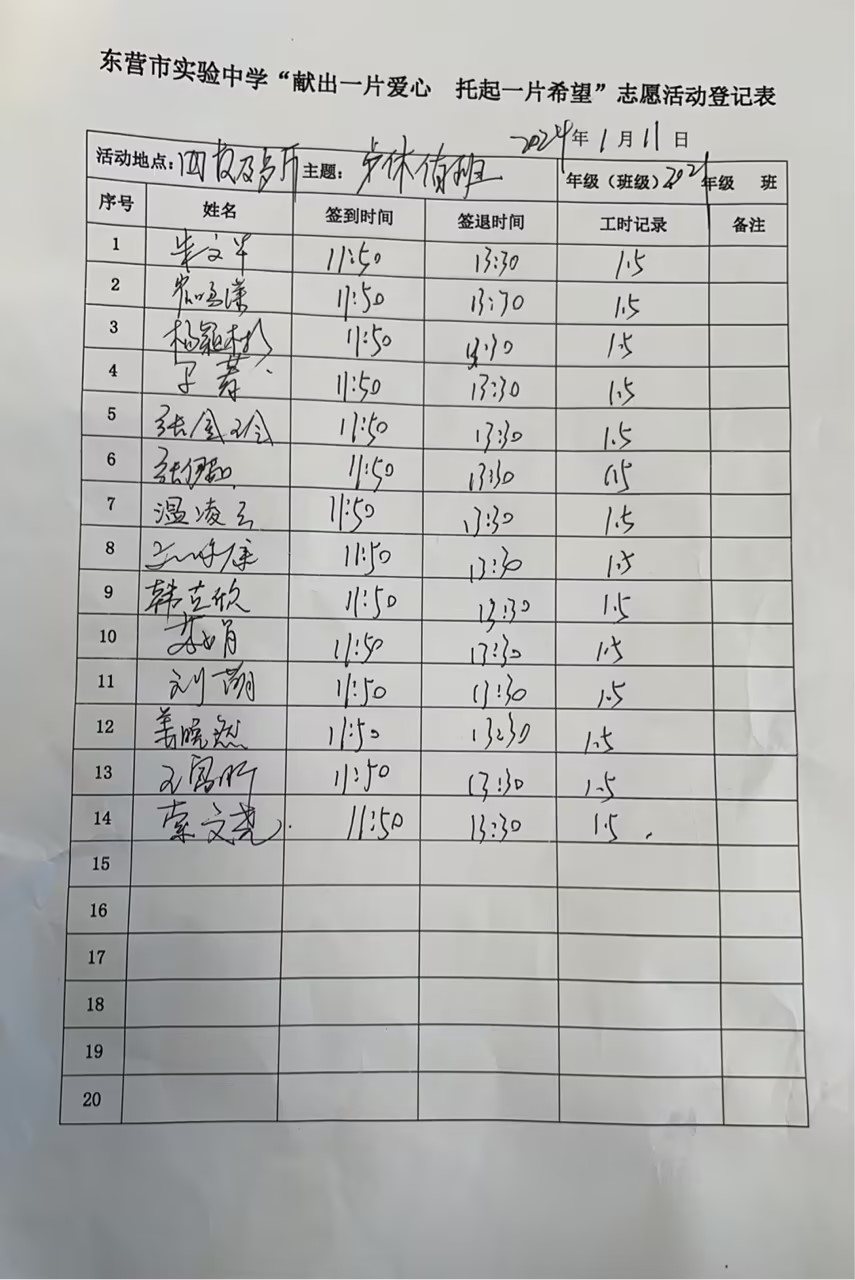 东营市实验中学“献出一片爱心 托起一片希望”志愿活动登记表
2024年1月11日
活动地点: 四校及 主题: 午休值班 年级（班级）2021年级 班
序号 姓名 签到时间 签退时间 工时记录 备注
1 文 11:50 13:30 1.5
2 11:50 13:30 1.5
3 杨颖 11:50 13:30 1.5
4 11:50 13:30 1.5
5 张金玲 11:50 13:30 1.5
6 张 11:50 13:30 1.5
7 温凌云 11:50 13:30 1.5
8 康 11:50 13:30 1.5
9 韩立欣 11:50 13:30 1.5
10 苏娟 11:50 13:30 1.5
11 刘萌 11:50 13:30 1.5
12 姜晓然 11:50 13:30 1.5
13 王富昕 11:50 13:30 1.5
14 索文尧 11:50 13:30 1.5
15
16
17
18
19
20